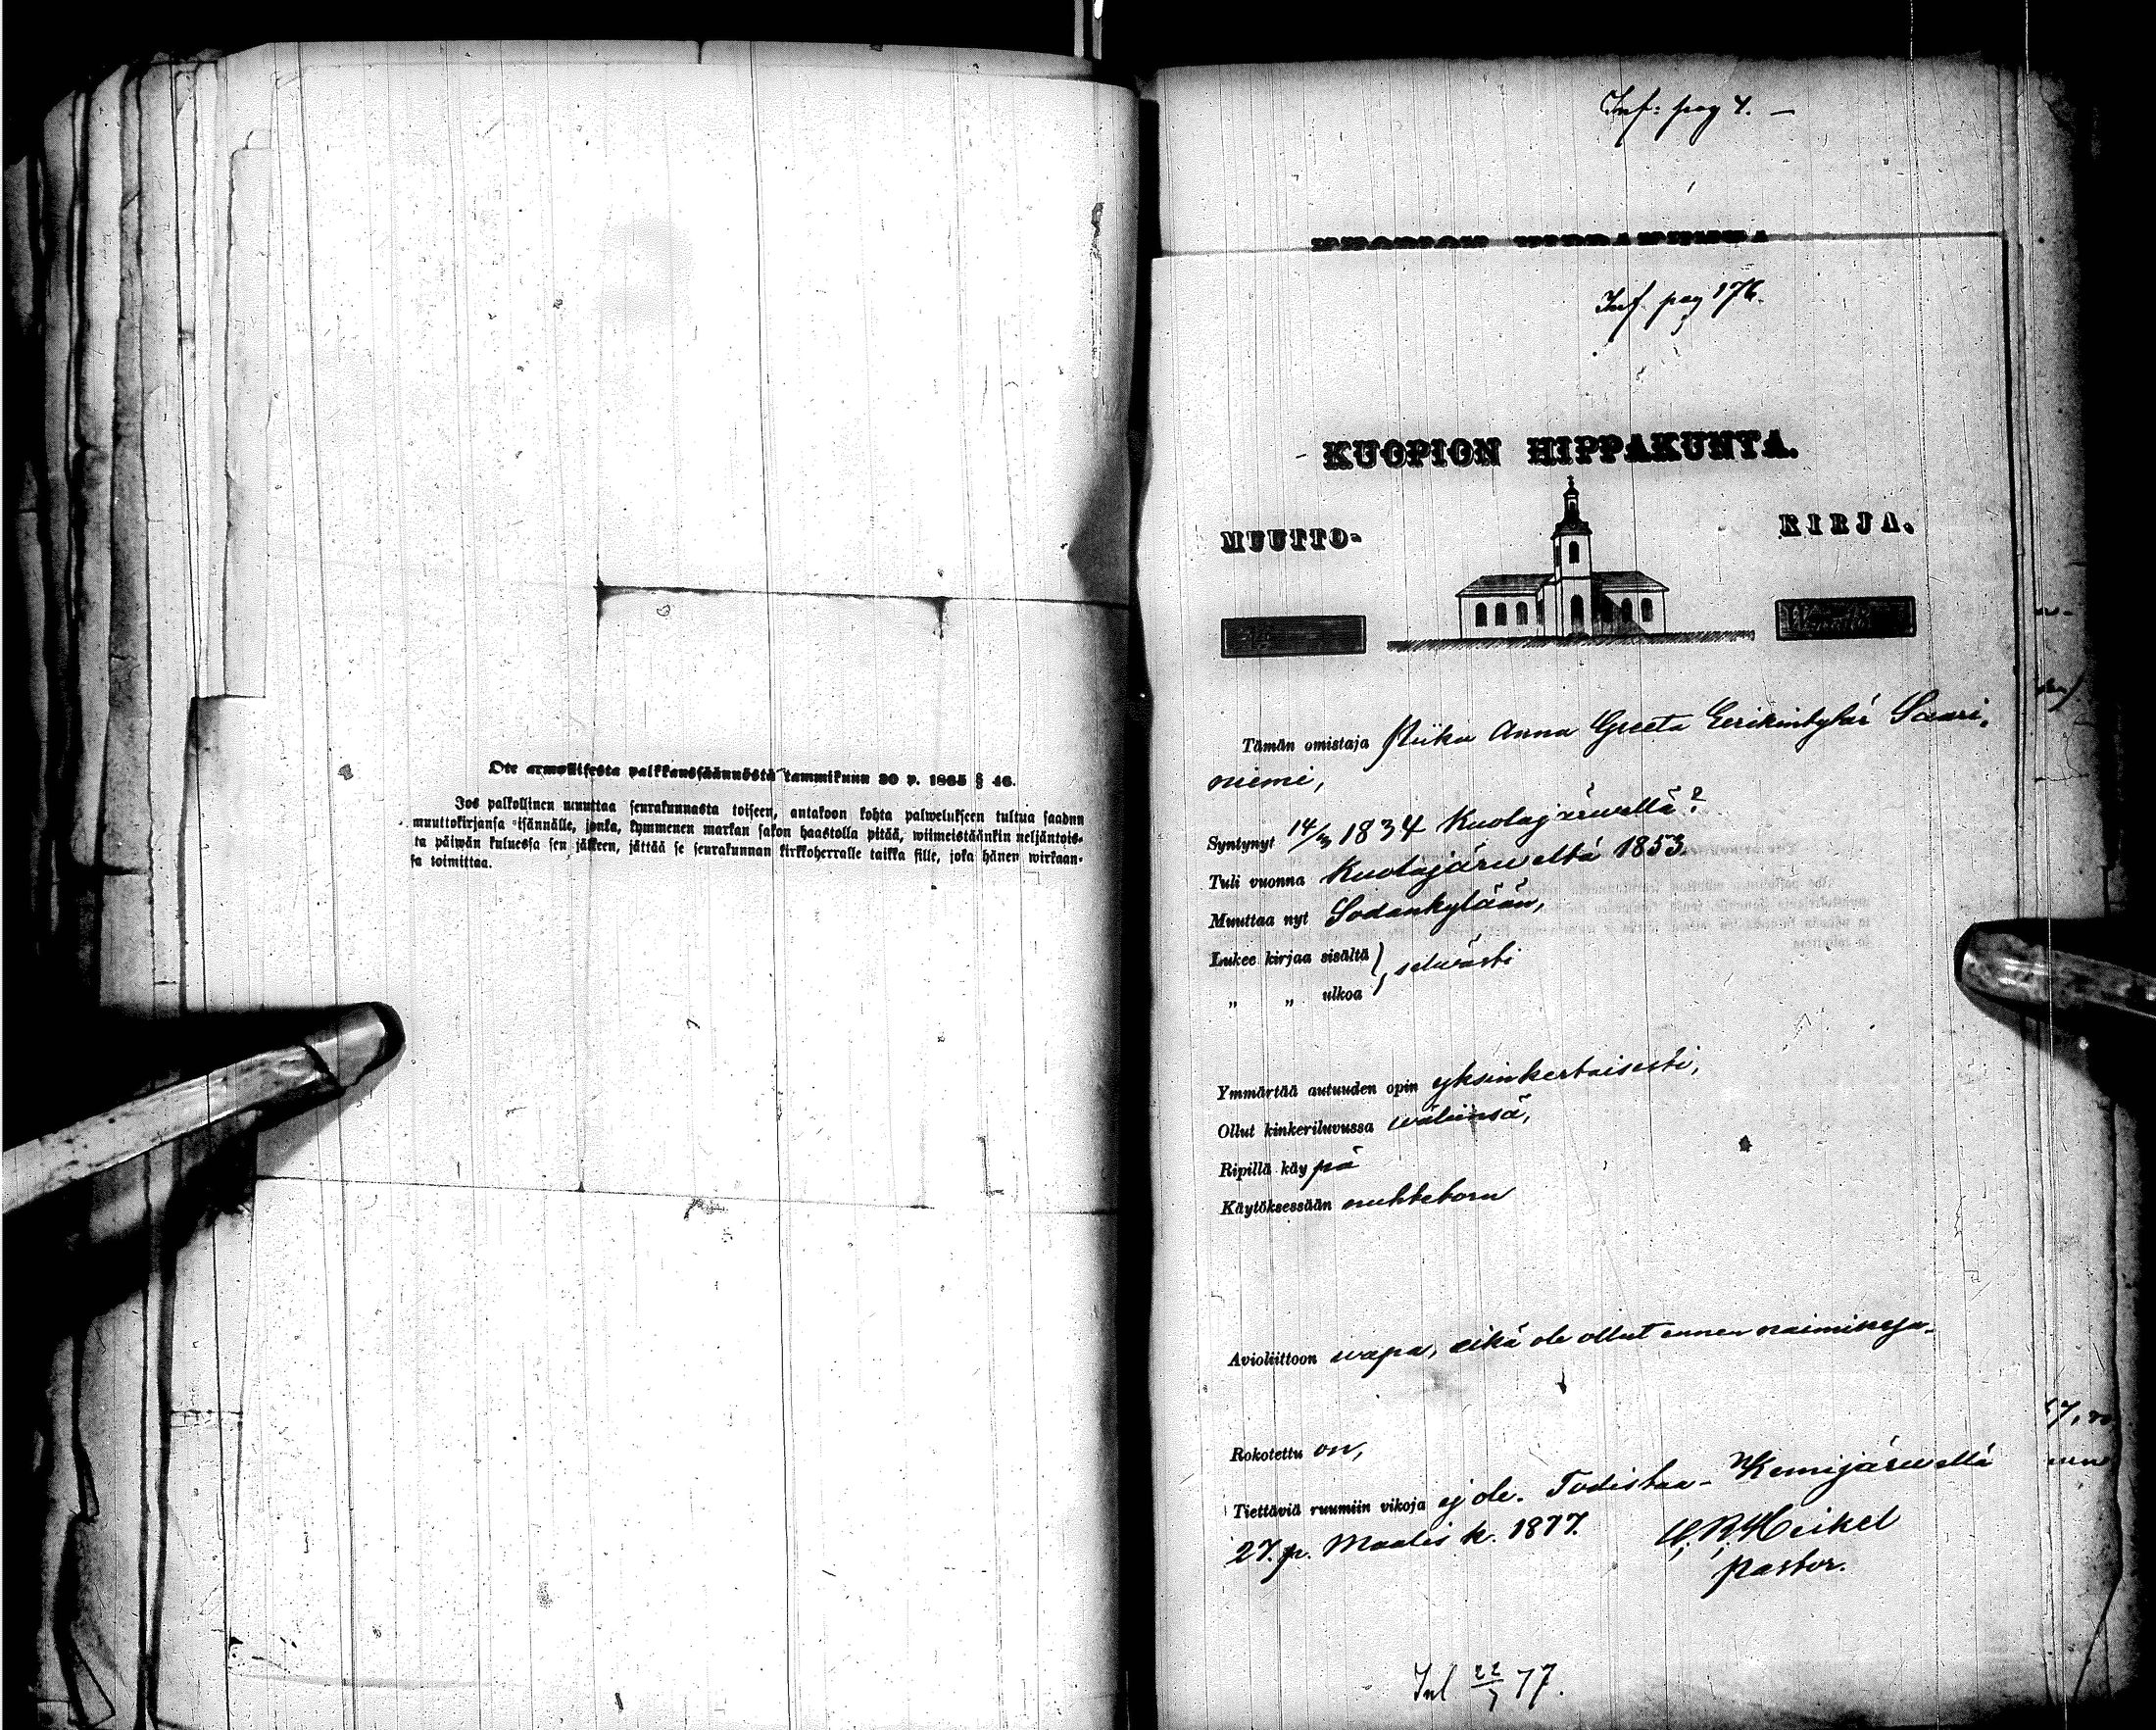 Ote armollisesta palkkaussäännöstä tammikuun 30 p. 1865 § 46.
Jos palkollinen muuttaa seurakunnasta toiseen, antakoon kohta palwelukseen tultua saadun
muuttokirjansa isännälle, jonka, kymmenen markan sakon haastolla pitää, wiimeistäänkin neljäntois-
ta päiwän kuluessa sen jälkeen, jättää se seurakunnan kirkkoherralle taikka sille, joka hänen wirkaan-
sa toimittaa.
Inf: pag 4. —
KUOPION HIPPAKUNTA
Inf pag 176.
KUOPION HIPPAKUNTA.
MUUTTO-
KIRJA.
Tämän omistaja Piika Anna Greeta Eerikintytär Saari-
niemi,
Syntynyt 14/3 1834 Kuolajärwellä?
Tuli vuonna Kuolajärweltä 1853.
Muuttaa nyt Sodankylään,
Lukee kirjaa sisältä } selwästi
„ „ ulkoa
Ymmärtää autuuden opin yksinkertaisesti,
Ollut kinkeriluvussa wäliinsä,
Ripillä käypä
Käytöksessään nuhteetoin
Avioliittoon wapa, eikä ole ollut ennen naimisessa.
Rokotettu on,
Tiettäviä ruumiin vikoja ej ole. Todistaa - Kemijärwellä
27. p. Maalis k. 1877.
Heikel
pastor.
Inl 22/7 77.